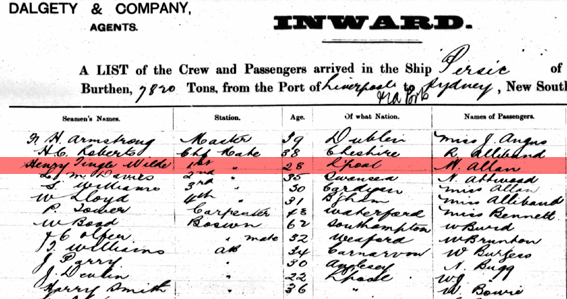 DALGETY & COMPANY,
AGENTS.
INWARD.
A LIST of the Crew and Passengers arrived in the Ship Persic of
Burthen, 7820 Tons, from the Port of Liverpool to Sydney, New South
Seamen's Names. Station. Age. Of what Nation. Names of Passengers.
H. Armstrong Master 39 Dublin Miss J. Angus
H. C. Roberts Chf Mate 38 Cheshire R. Alliband
Henry Tingle Wilde 1st " 28 L'pool N. Allan
Davies 2nd " 35 Swansea N. Attwood
S. Williams 3rd " 30 Cardigan Miss Allan
W. Lloyd 4th " 31 B'ham Miss Alliband
P. Tower Carpenter 48 Waterford Miss Bennett
W Bood Boswn 62 Southampton W Burd
" mate 32 Wexford W Brunton
T. Williams AB 34 Carnarvon W Burgess
J. Parry " 30 Anglesey N. Bugg
J. Devlin " 22 L'pool
Harry Smith " 36 " W. Bowie